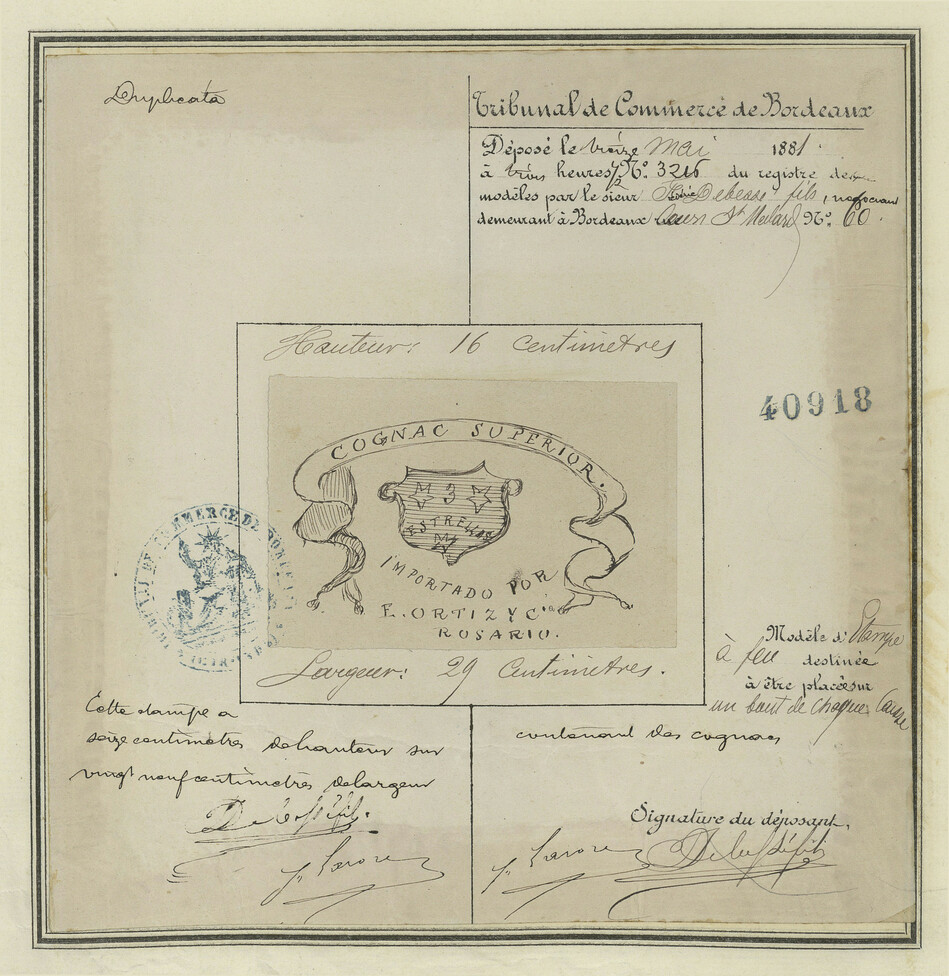 Duplicata
Tribunal de Commerce de Bordeaux
Déposé le treize Mai 1881.
à trois heures 1/2 N° 3216 du registre des
modèles par le sieur Debessé fils, négociant
demeurant à Bordeaux Cours St Médard N° 60.
Hauteur: 16 Centimètres
40918
COGNAC SUPERIOR.
3
ESTRELLAS
IMPORTADO POR
E. ORTIZ Y Cia
ROSARIO.
TRIBUNAL DE COMMERCE DE BORDEAUX
Largeur: 29 Centimètres.
Modèle d'Etampe
à feu destinée
à être placée sur
un bout de chaque Caisse
contenant des cognacs
Cette étampe a
seize centimètres de hauteur sur
vingt neuf centimètres de largeur
Signature du déposant,